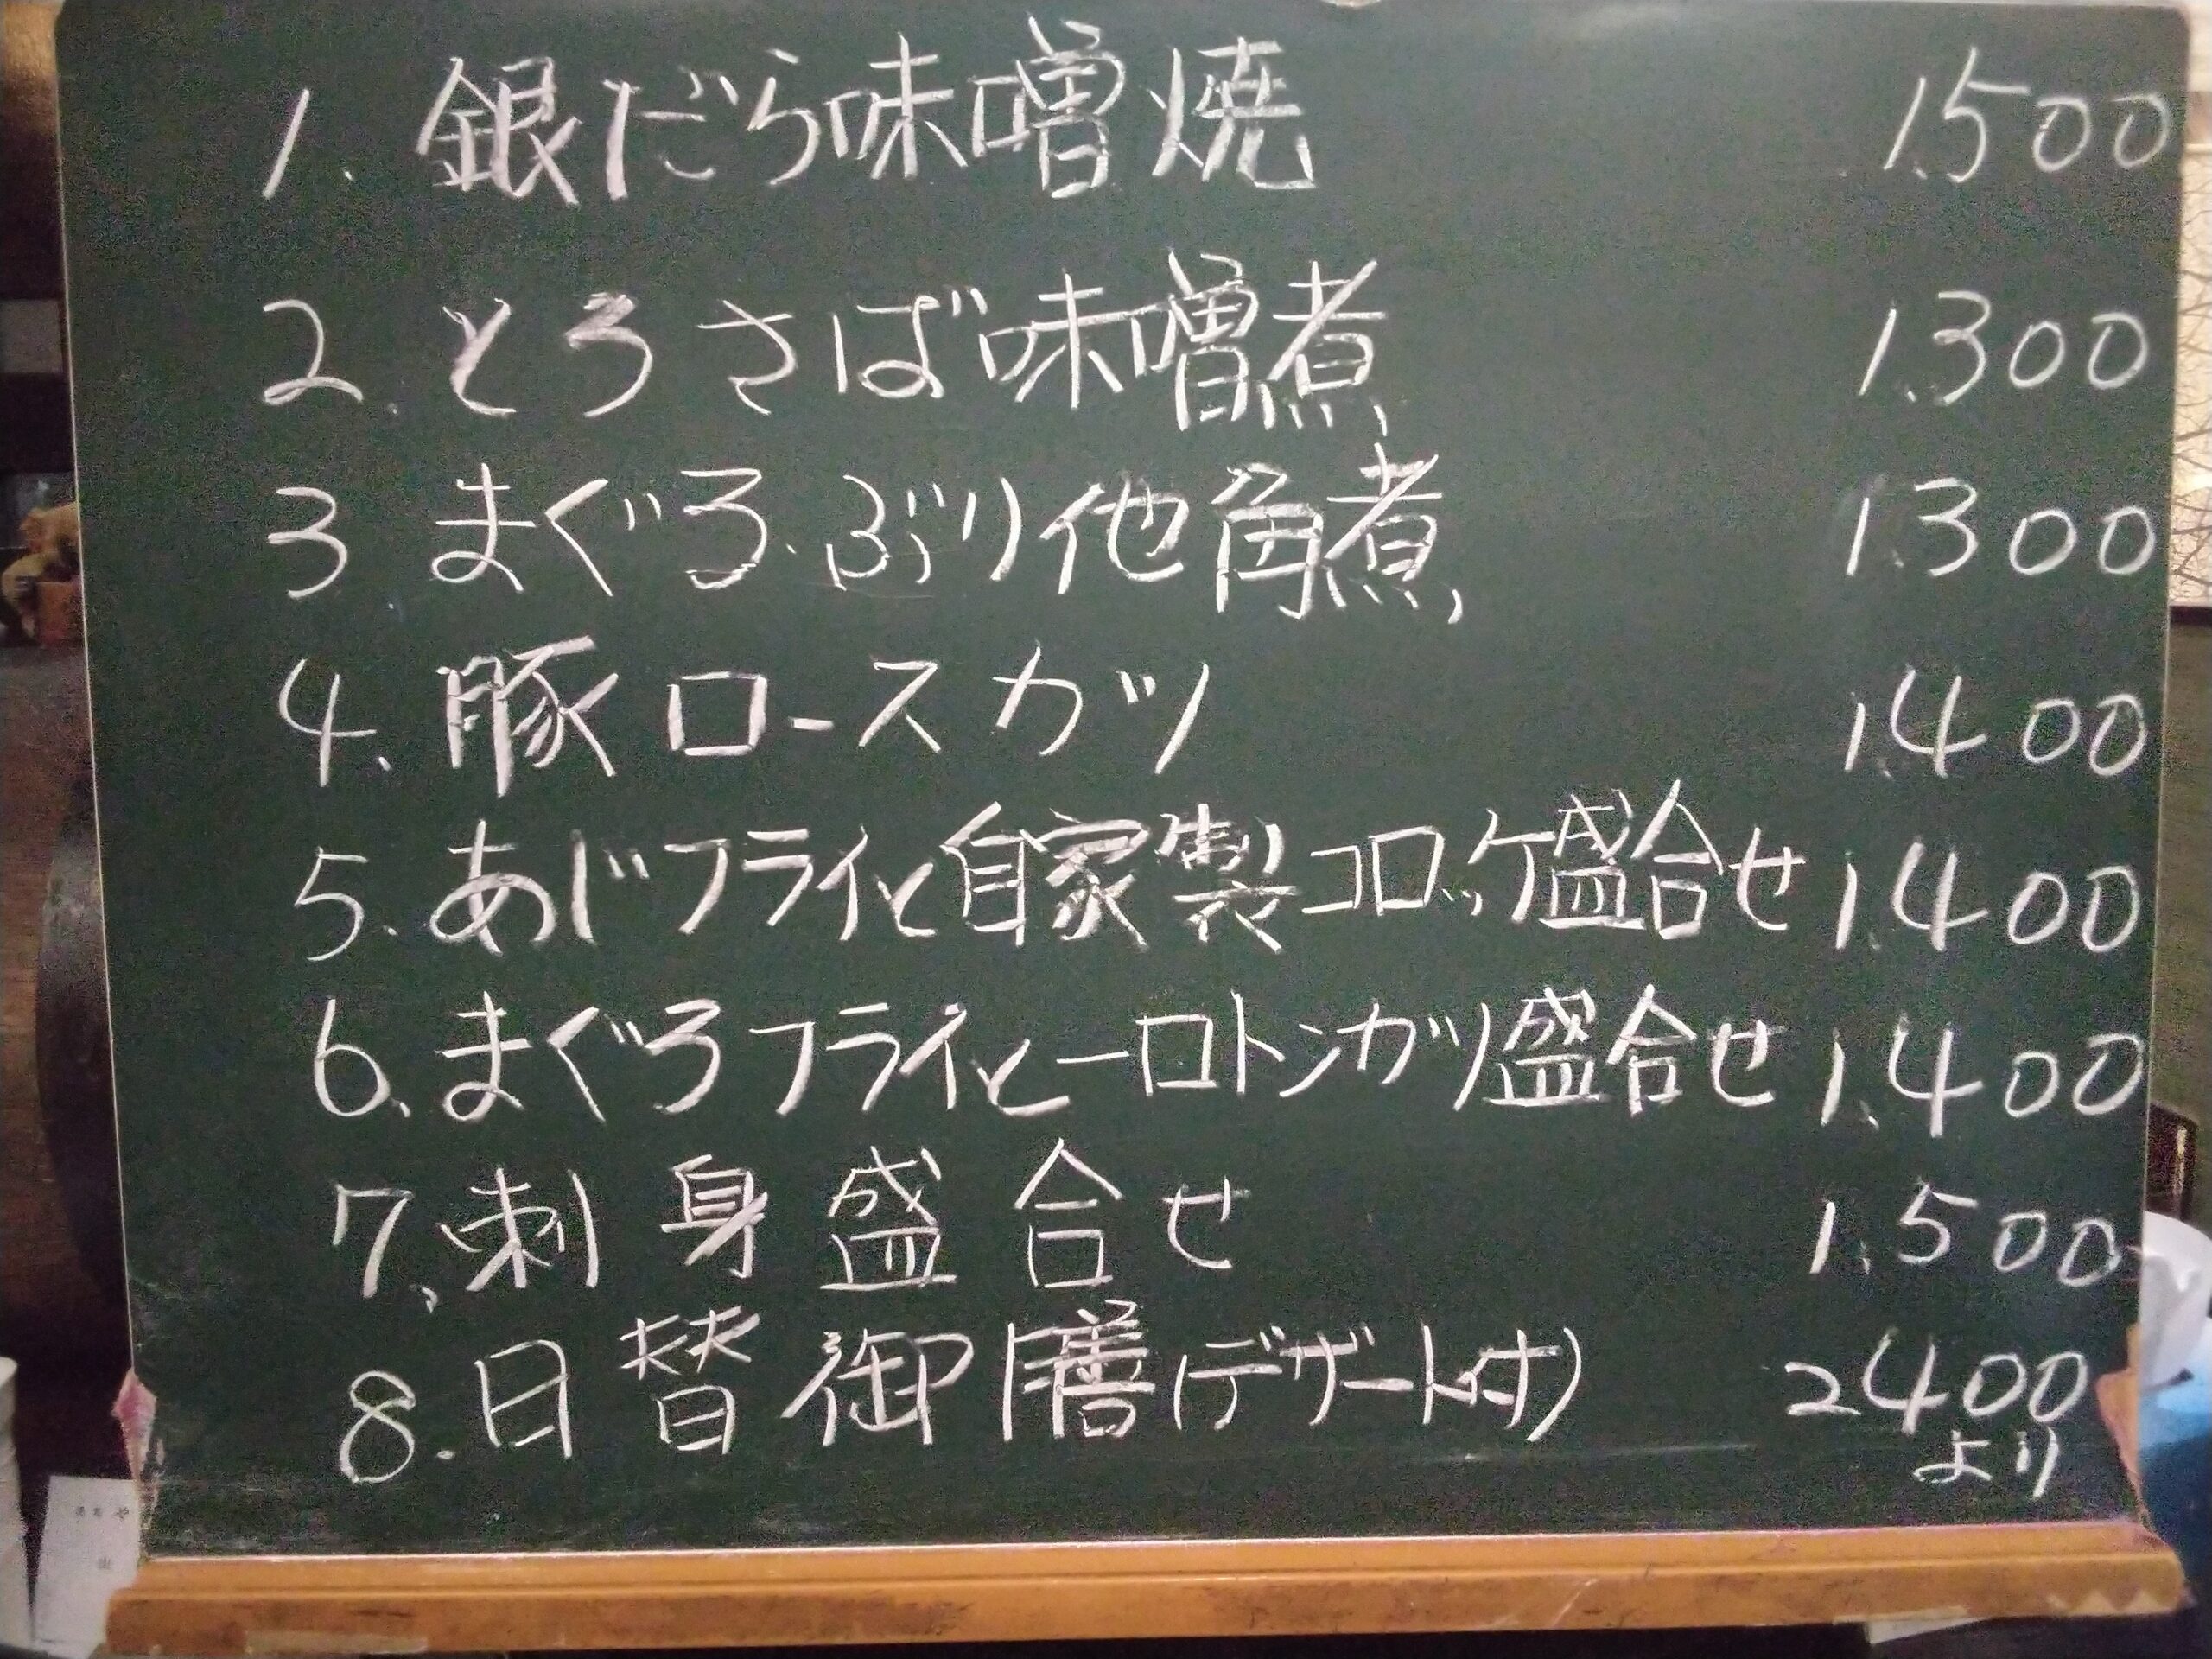 1. 銀だら味噌焼 1.500
2. とろさば味噌煮 1.300
3 まぐろ、ぶり他角煮 1.300
4. 豚ロースカツ 1.400
5. あじフライと自家製コロッケ盛合せ 1.400
6. まぐろフライと一口トンカツ盛合せ 1.400
7. 刺身盛合せ 1.500
8. 日替御膳(デザート付) 2400
より